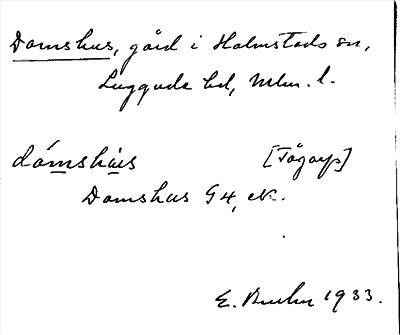 Damshus, gård i Halmstads sn,
Luggude hd, Mlm. l.
dámshùs [Tågarp]
Damshus G4, ek.
E. Bruhn 1933.